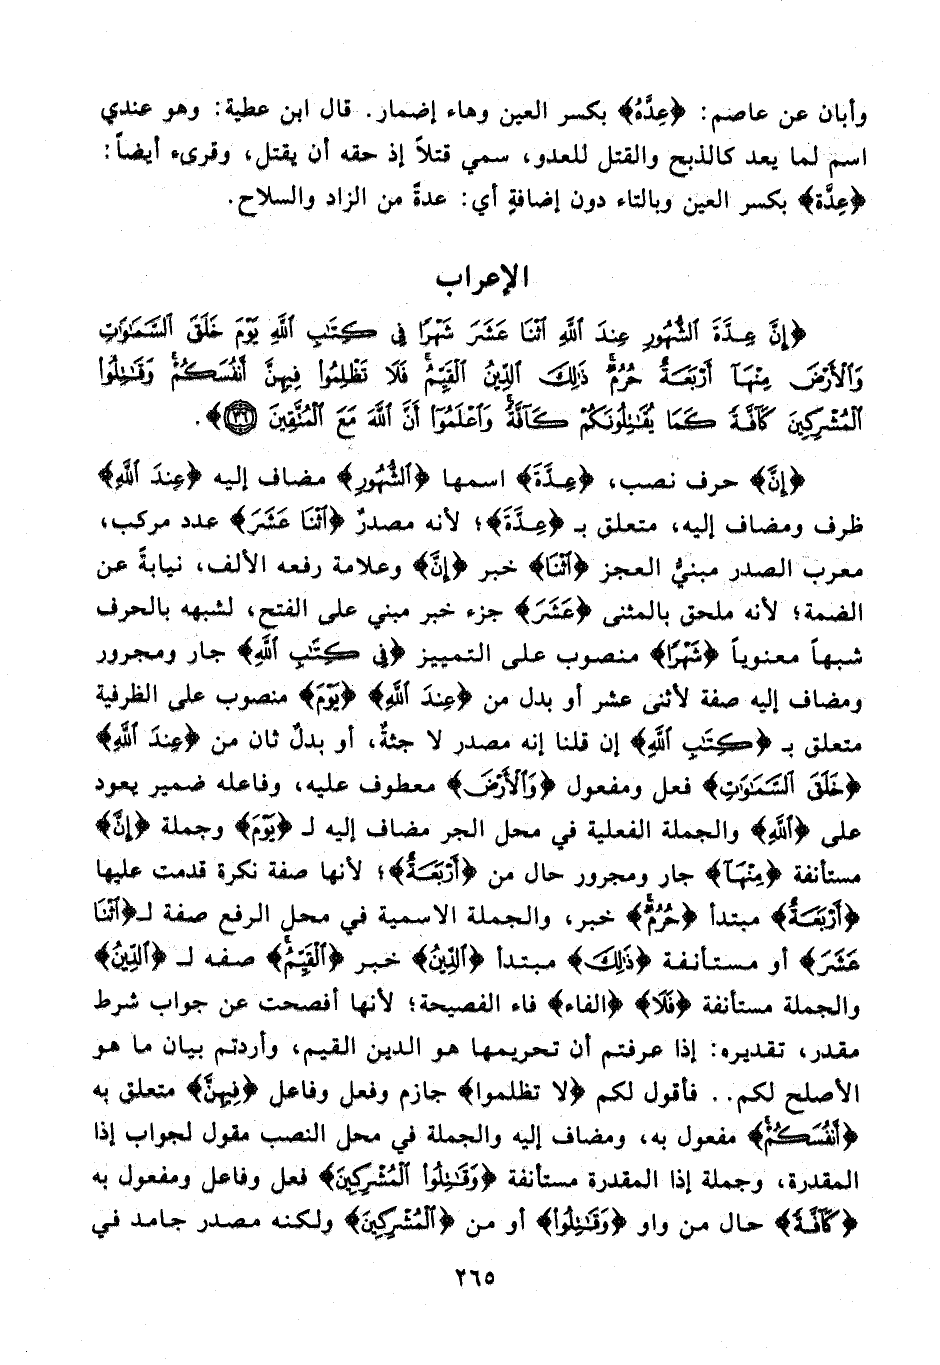 وأبان عن عاصم: ﴿عِدَّهُ﴾ بكسر العين وهاء إضمار. قال ابن عطية: وهو عندي
اسم لما يعد كالذبح والقتل للعدو، سمي قتلاً إذ حقه أن يقتل، وقرىء أيضاً:
﴿عِدَّة﴾ بكسر العين وبالتاء دون إضافةٍ أي: عدةً من الزاد والسلاح.
الإعراب
﴿إِنَّ عِدَّةَ الشُّهُورِ عِندَ اللَّهِ اثْنَا عَشَرَ شَهْرًا فِي كِتَٰبِ اللَّهِ يَوْمَ خَلَقَ السَّمَٰوَٰتِ
وَالْأَرْضَ مِنْهَآ أَرْبَعَةٌ حُرُمٌ ۚ ذَٰلِكَ الدِّينُ الْقَيِّمُ ۚ فَلَا تَظْلِمُوا فِيهِنَّ أَنفُسَكُمْ ۚ وَقَٰتِلُوا
الْمُشْرِكِينَ كَآفَّةً كَمَا يُقَٰتِلُونَكُمْ كَآفَّةً ۚ وَاعْلَمُوٓا أَنَّ اللَّهَ مَعَ الْمُتَّقِينَ ٣٦﴾.
﴿إِنَّ﴾ حرف نصب، ﴿عِدَّةَ﴾ اسمها ﴿الشُّهُورِ﴾ مضاف إليه ﴿عِندَ اللَّهِ﴾
ظرف ومضاف إليه، متعلق بـ ﴿عِدَّةَ﴾؛ لأنه مصدرٌ ﴿اثْنَا عَشَرَ﴾ عدد مركب،
معرب الصدر مبنيُّ العجز ﴿اثْنَا﴾ خبر ﴿إِنَّ﴾ وعلامة رفعه الألف، نيابةً عن
الضمة؛ لأنه ملحق بالمثنى ﴿عَشَرَ﴾ جزء خبر مبني على الفتح، لشبهه بالحرف
شبهاً معنوياً ﴿شَهْرًا﴾ منصوب على التمييز ﴿فِي كِتَٰبِ اللَّهِ﴾ جار ومجرور
ومضاف إليه صفة لأثنى عشر أو بدل من ﴿عِندَ اللَّهِ﴾ ﴿يَوْمَ﴾ منصوب على الظرفية
متعلق بـ ﴿كِتَٰبِ اللَّهِ﴾ إن قلنا إنه مصدر لا جثةٌ، أو بدلٌ ثان من ﴿عِندَ اللَّهِ﴾
﴿خَلَقَ السَّمَٰوَٰتِ﴾ فعل ومفعول ﴿وَالْأَرْضَ﴾ معطوف عليه، وفاعله ضمير يعود
على ﴿اللَّهِ﴾ والجملة الفعلية في محل الجر مضاف إليه لـ ﴿يَوْمَ﴾ وجملة ﴿إِنَّ﴾
مستأنفة ﴿مِنْهَآ﴾ جار ومجرور حال من ﴿أَرْبَعَةٌ﴾؛ لأنها صفة نكرة قدمت عليها
﴿أَرْبَعَةٌ﴾ مبتدأ ﴿حُرُمٌ ۚ﴾ خبر، والجملة الاسمية في محل الرفع صفة لـ﴿اثْنَا
عَشَرَ﴾ أو مستأنفة ﴿ذَٰلِكَ﴾ مبتدأ ﴿الدِّينُ﴾ خبر ﴿الْقَيِّمُ ۚ﴾ صفه لـ ﴿الدِّينُ﴾
والجملة مستأنفة ﴿فَلَا﴾ ﴿الفاء﴾ فاء الفصيحة؛ لأنها أفصحت عن جواب شرط
مقدر، تقديره: إذا عرفتم أن تحريمها هو الدين القيم، وأردتم بيان ما هو
الأصلح لكم.. فأقول لكم ﴿لا تظلموا﴾ جازم وفعل وفاعل ﴿فِيهِنَّ﴾ متعلق به
﴿أَنفُسَكُمْ ۚ﴾ مفعول به، ومضاف إليه والجملة في محل النصب مقول لجواب إذا
المقدرة، وجملة إذا المقدرة مستأنفة ﴿وَقَٰتِلُوا الْمُشْرِكِينَ﴾ فعل وفاعل ومفعول به
﴿كَآفَّةً﴾ حال من واو ﴿وَقَٰتِلُوا﴾ أو من ﴿الْمُشْرِكِينَ﴾ ولكنه مصدر جامد في
٢٦٥